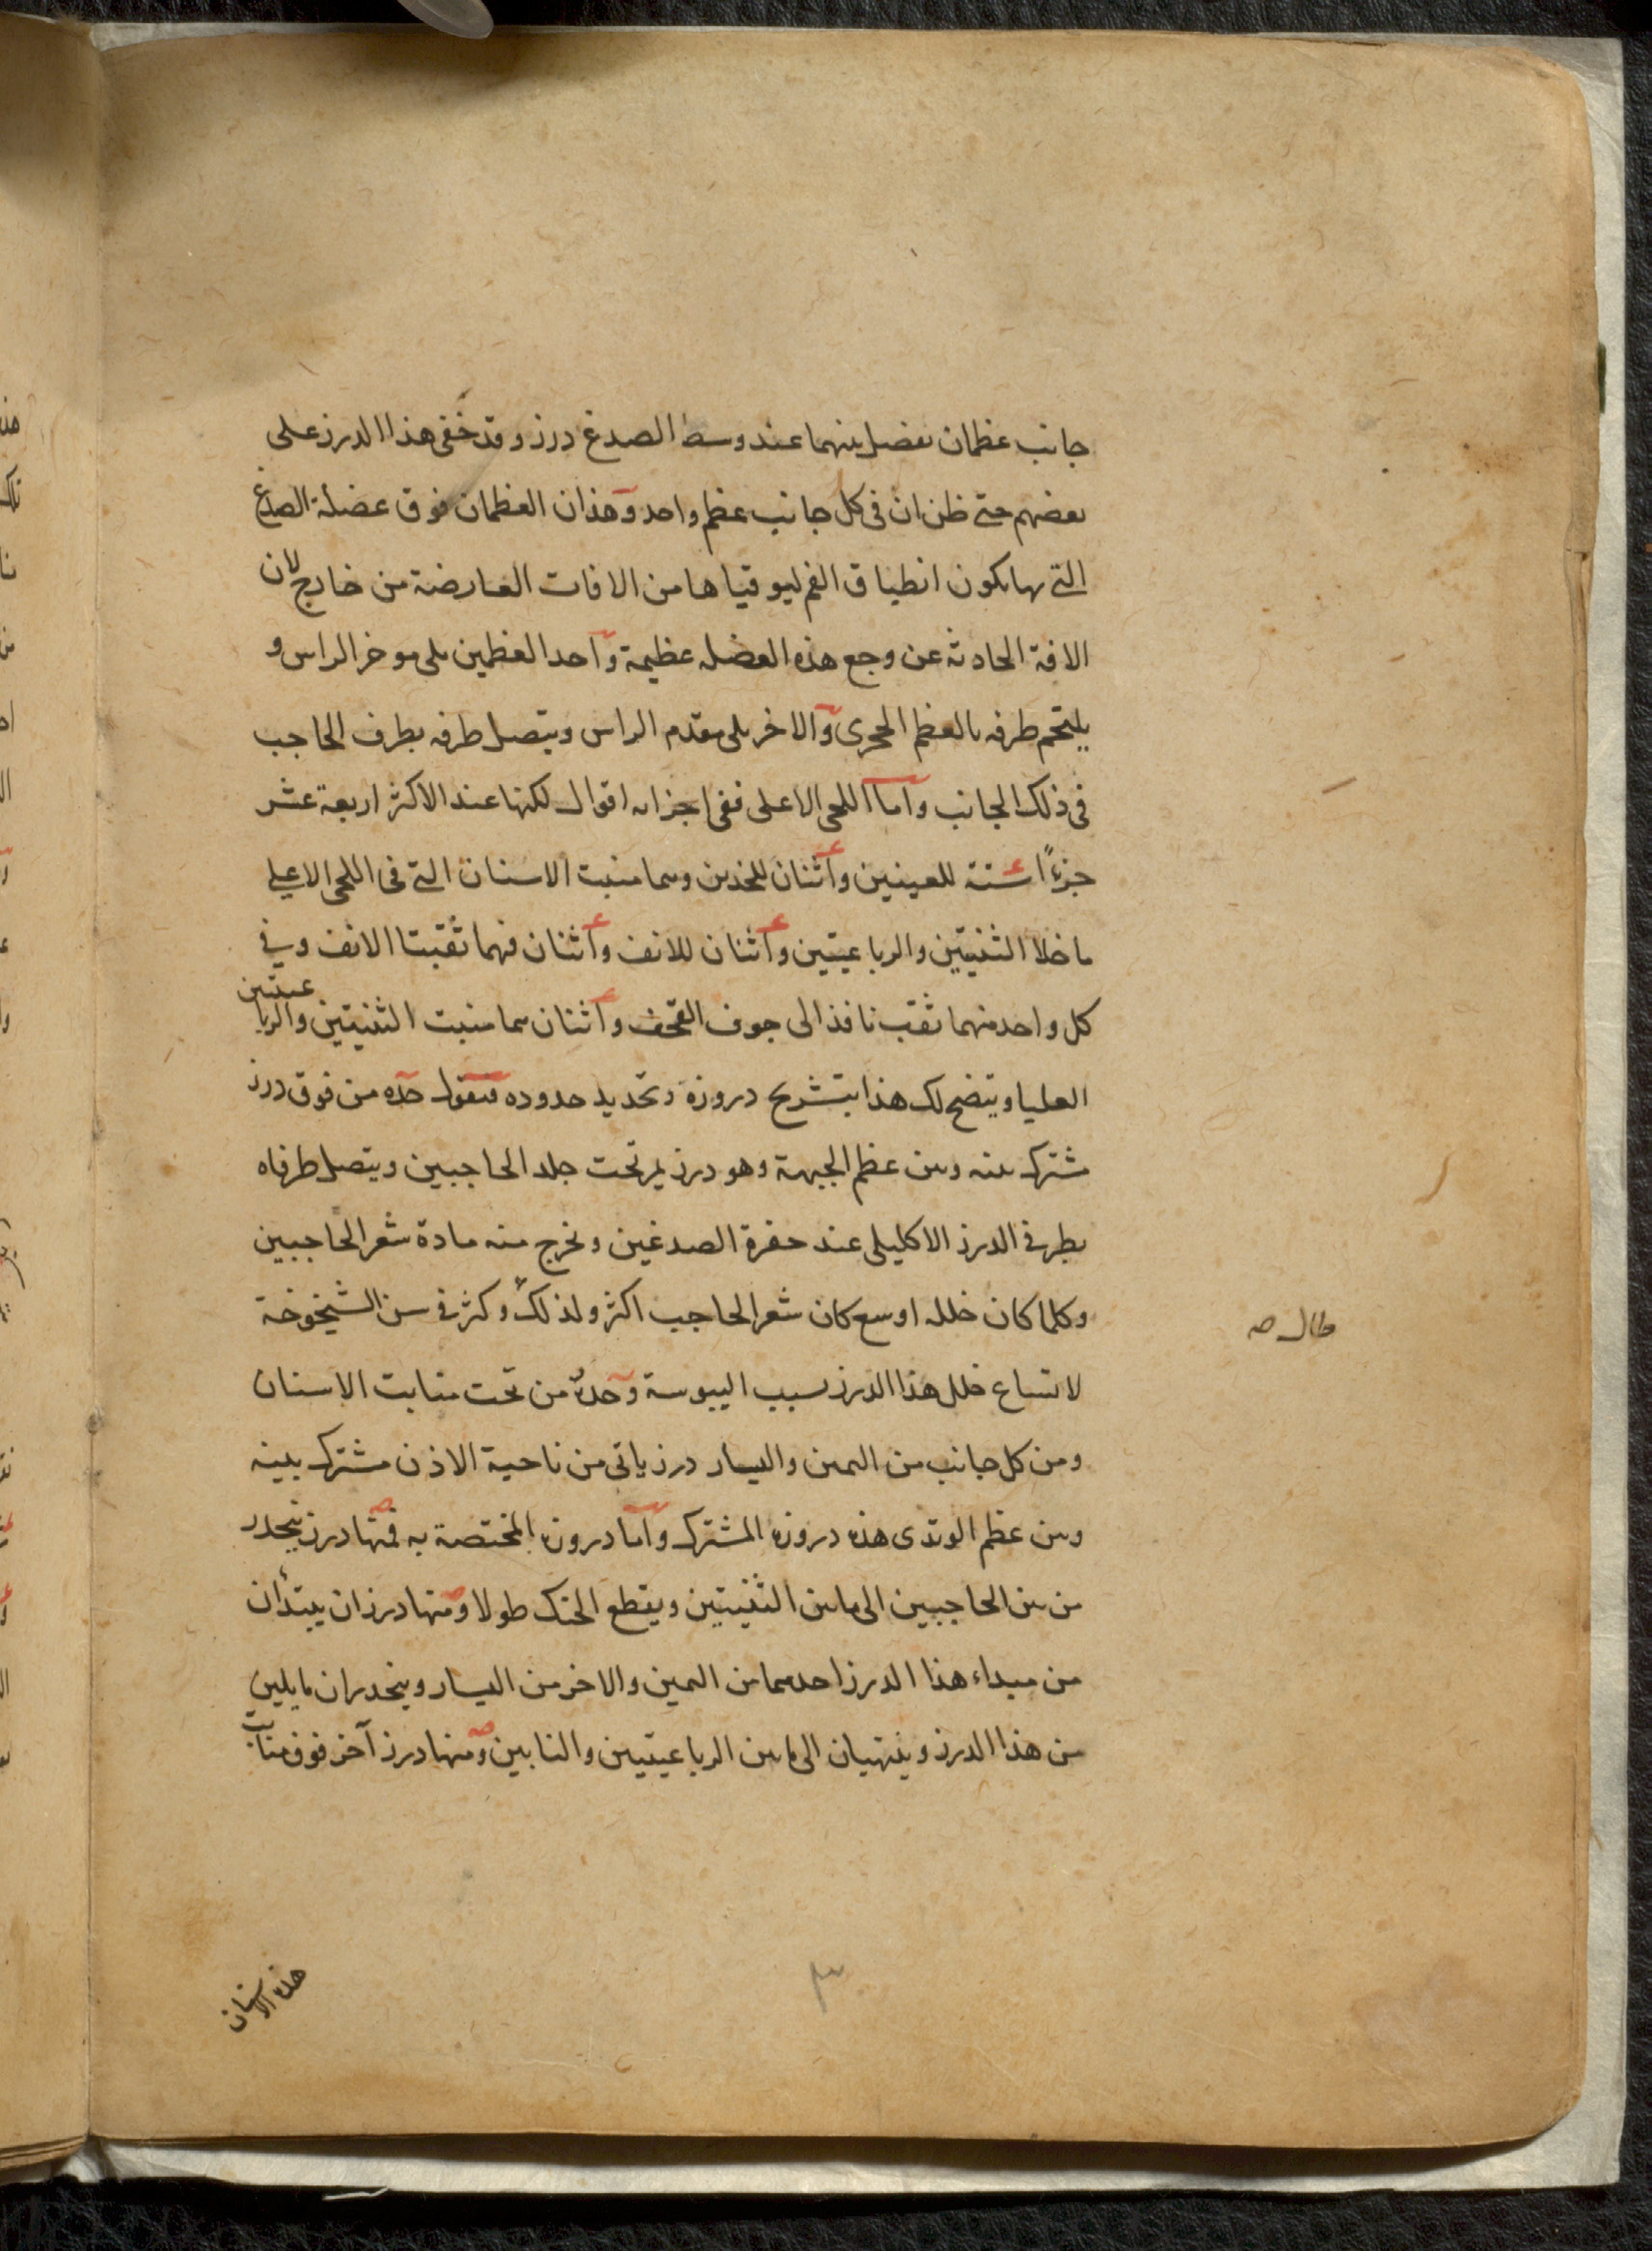 جانب عظمان يفصل بينهما عند وسط الصدغ درز وقد خفى هذا الدرز على
بعضهم حتى ظن ان فى كل جانب عظم واحد وهذان العظمان فوق عضلة الصدغ
التى بها يكون انطباق الفم ليوقياها من الافات العارضة من خارج لان
الافة الحادثة عن وجع هذه العضلة عظيمة واحد العظمين يلى موخر الراس و
يلتحم طرفه بالعظم الحجرى والاخر يلى مقدم الراس ويتصل طرفه بطرف الحاجب
فى ذلك الجانب واما اللحى الاعلى ففى اجزائه اقوال لكنها عند الاكثر اربعة عشر
جزءًا ستة للعينين واثنان للخدين وهما منبت الاسنان التى فى اللحى الاعلى
ما خلا الثنيتين والرباعيتين واثنان للانف واثنان فهما ثقبتا الانف وفى
كل واحد منهما ثقب نافذ الى جوف القحف واثنان هما منبت الثنيتين والرباعيتين
العليا ويتضح لك هذا بتشريح دروزه وتحديد حدوده فنقول حده من فوق درز
مشترك بينه وبين عظم الجبهة وهو درز يمر تحت جلد الحاجبين ويتصل طرفاه
بطرفى الدرز الاكليلى عند حفرة الصدغين ويخرج منه مادة شعر الحاجبين
وكلما كان خلله اوسع كان شعر الحاجب اكثر ولذلك وكثر فى سن الشيخوخة
طال صه
لاتساع خلل هذا الدرز بسبب اليبوسة وحده من تحت منابت الاسنان
ومن كل جانب من اليمين واليسار درز ياتى من ناحية الاذن مشترك بينه
وبين عظم الوتدى هذه دروزه المشترك واما دروزه المختصة به فمنها درز ينحدر
من بين الحاجبين الى ما بين الثنيتين ويقطع الحنك طولا ومنها درزان يبتدأن
من مبداء هذا الدرز احدهما من اليمين والاخر من اليسار وينحدران مايلين
من هذا الدرز وينتهيان الى ما بين الرباعيتين والنابين ومنها درز آخر فوق منابت
هذه الاسنان
٣